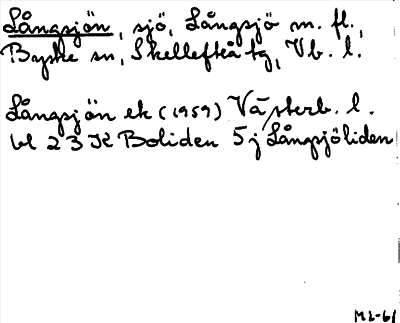 Långsjön, sjö, Långsjö m. fl.,
Byske sn, Skellefteå tg, Vb. l.
Långsjön ek (1959) Västerb. l.
bl 23 K Boliden 5j Långsjöliden
M L-61